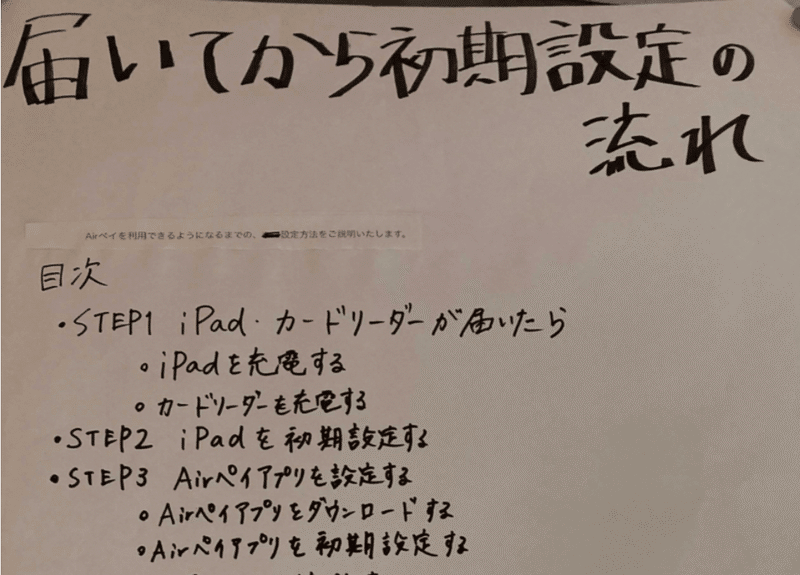 届いてから初期設定の
流れ
Airペイを利用できるようになるまでの、設定方法をご説明いたします。
目次
・STEP1 iPad・カードリーダーが届いたら
○iPadを充電する
○カードリーダーも充電する
・STEP2 iPadを初期設定する
・STEP3 Airペイアプリを設定する
○Airペイアプリをダウンロードする
○Airペイアプリを初期設定する